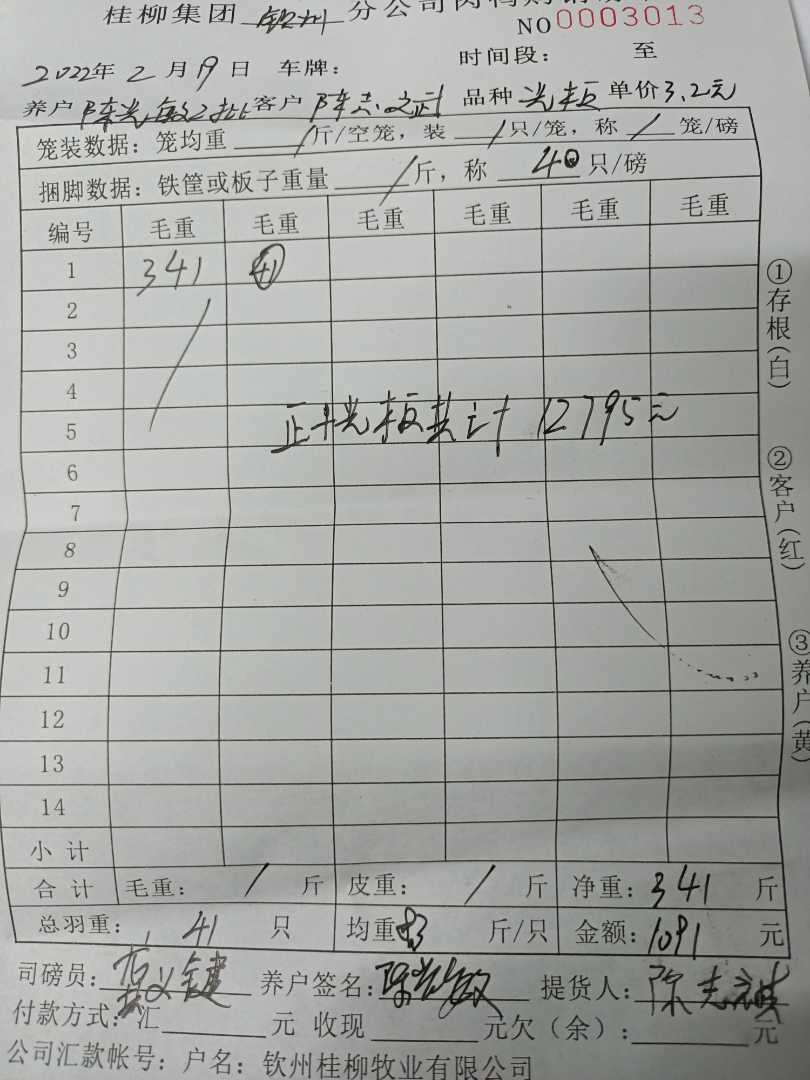 桂柳集团 钦州 分公司肉鸭购销
NO 0003013
2022年 2 月 19 日 车牌: 时间段: 至
养户 陈光敏2批 客户 陈志武 品种 光板 单价 3.2元
笼装数据: 笼均重 / 斤/空笼, 装 / 只/笼, 称 / 笼/磅
捆脚数据: 铁筐或板子重量 / 斤, 称 40 只/磅
编号 毛重 毛重 毛重 毛重 毛重 毛重
1 341 41
2
3
4
5
正+光板共计 12795元
6
7
8
9
10
11
12
13
14
小计
合计 毛重: / 斤 皮重: / 斤 净重: 341 斤
总羽重: 41 只 均重 8.3 斤/只 金额: 1091 元
司磅员: 养户签名: 陈光敏 提货人: 陈志
付款方式: 汇 元 收现 元欠(余): 元
公司汇款帐号: 户名: 钦州桂柳牧业有限公司
①存根(白)
②客户(红)
③养户(黄)